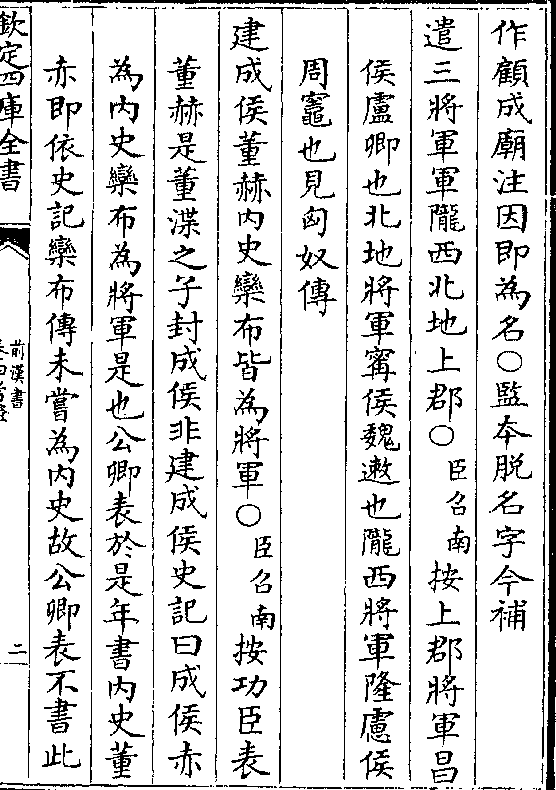 作顧成廟注因即為名○監本脱名字今補
遣三將軍軍隴西北地上郡○臣召南按上郡將軍昌
侯盧卿也北地將軍甯侯魏遬也隴西將軍隆慮侯
周竈也見匈奴傳
建成侯董赫内史欒布皆為將軍○臣召南按功臣表
董赫是董渫之子封成侯非建成侯史記曰成侯赤
為内史欒布為將軍是也公卿表於是年書内史董
赤即依史記欒布傳未嘗為内史故公卿表不書此
欽定四庫全書
前漢書
卷四考證
二